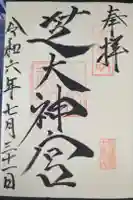 奉拝
芝大神宮
令和六年七月三十一日